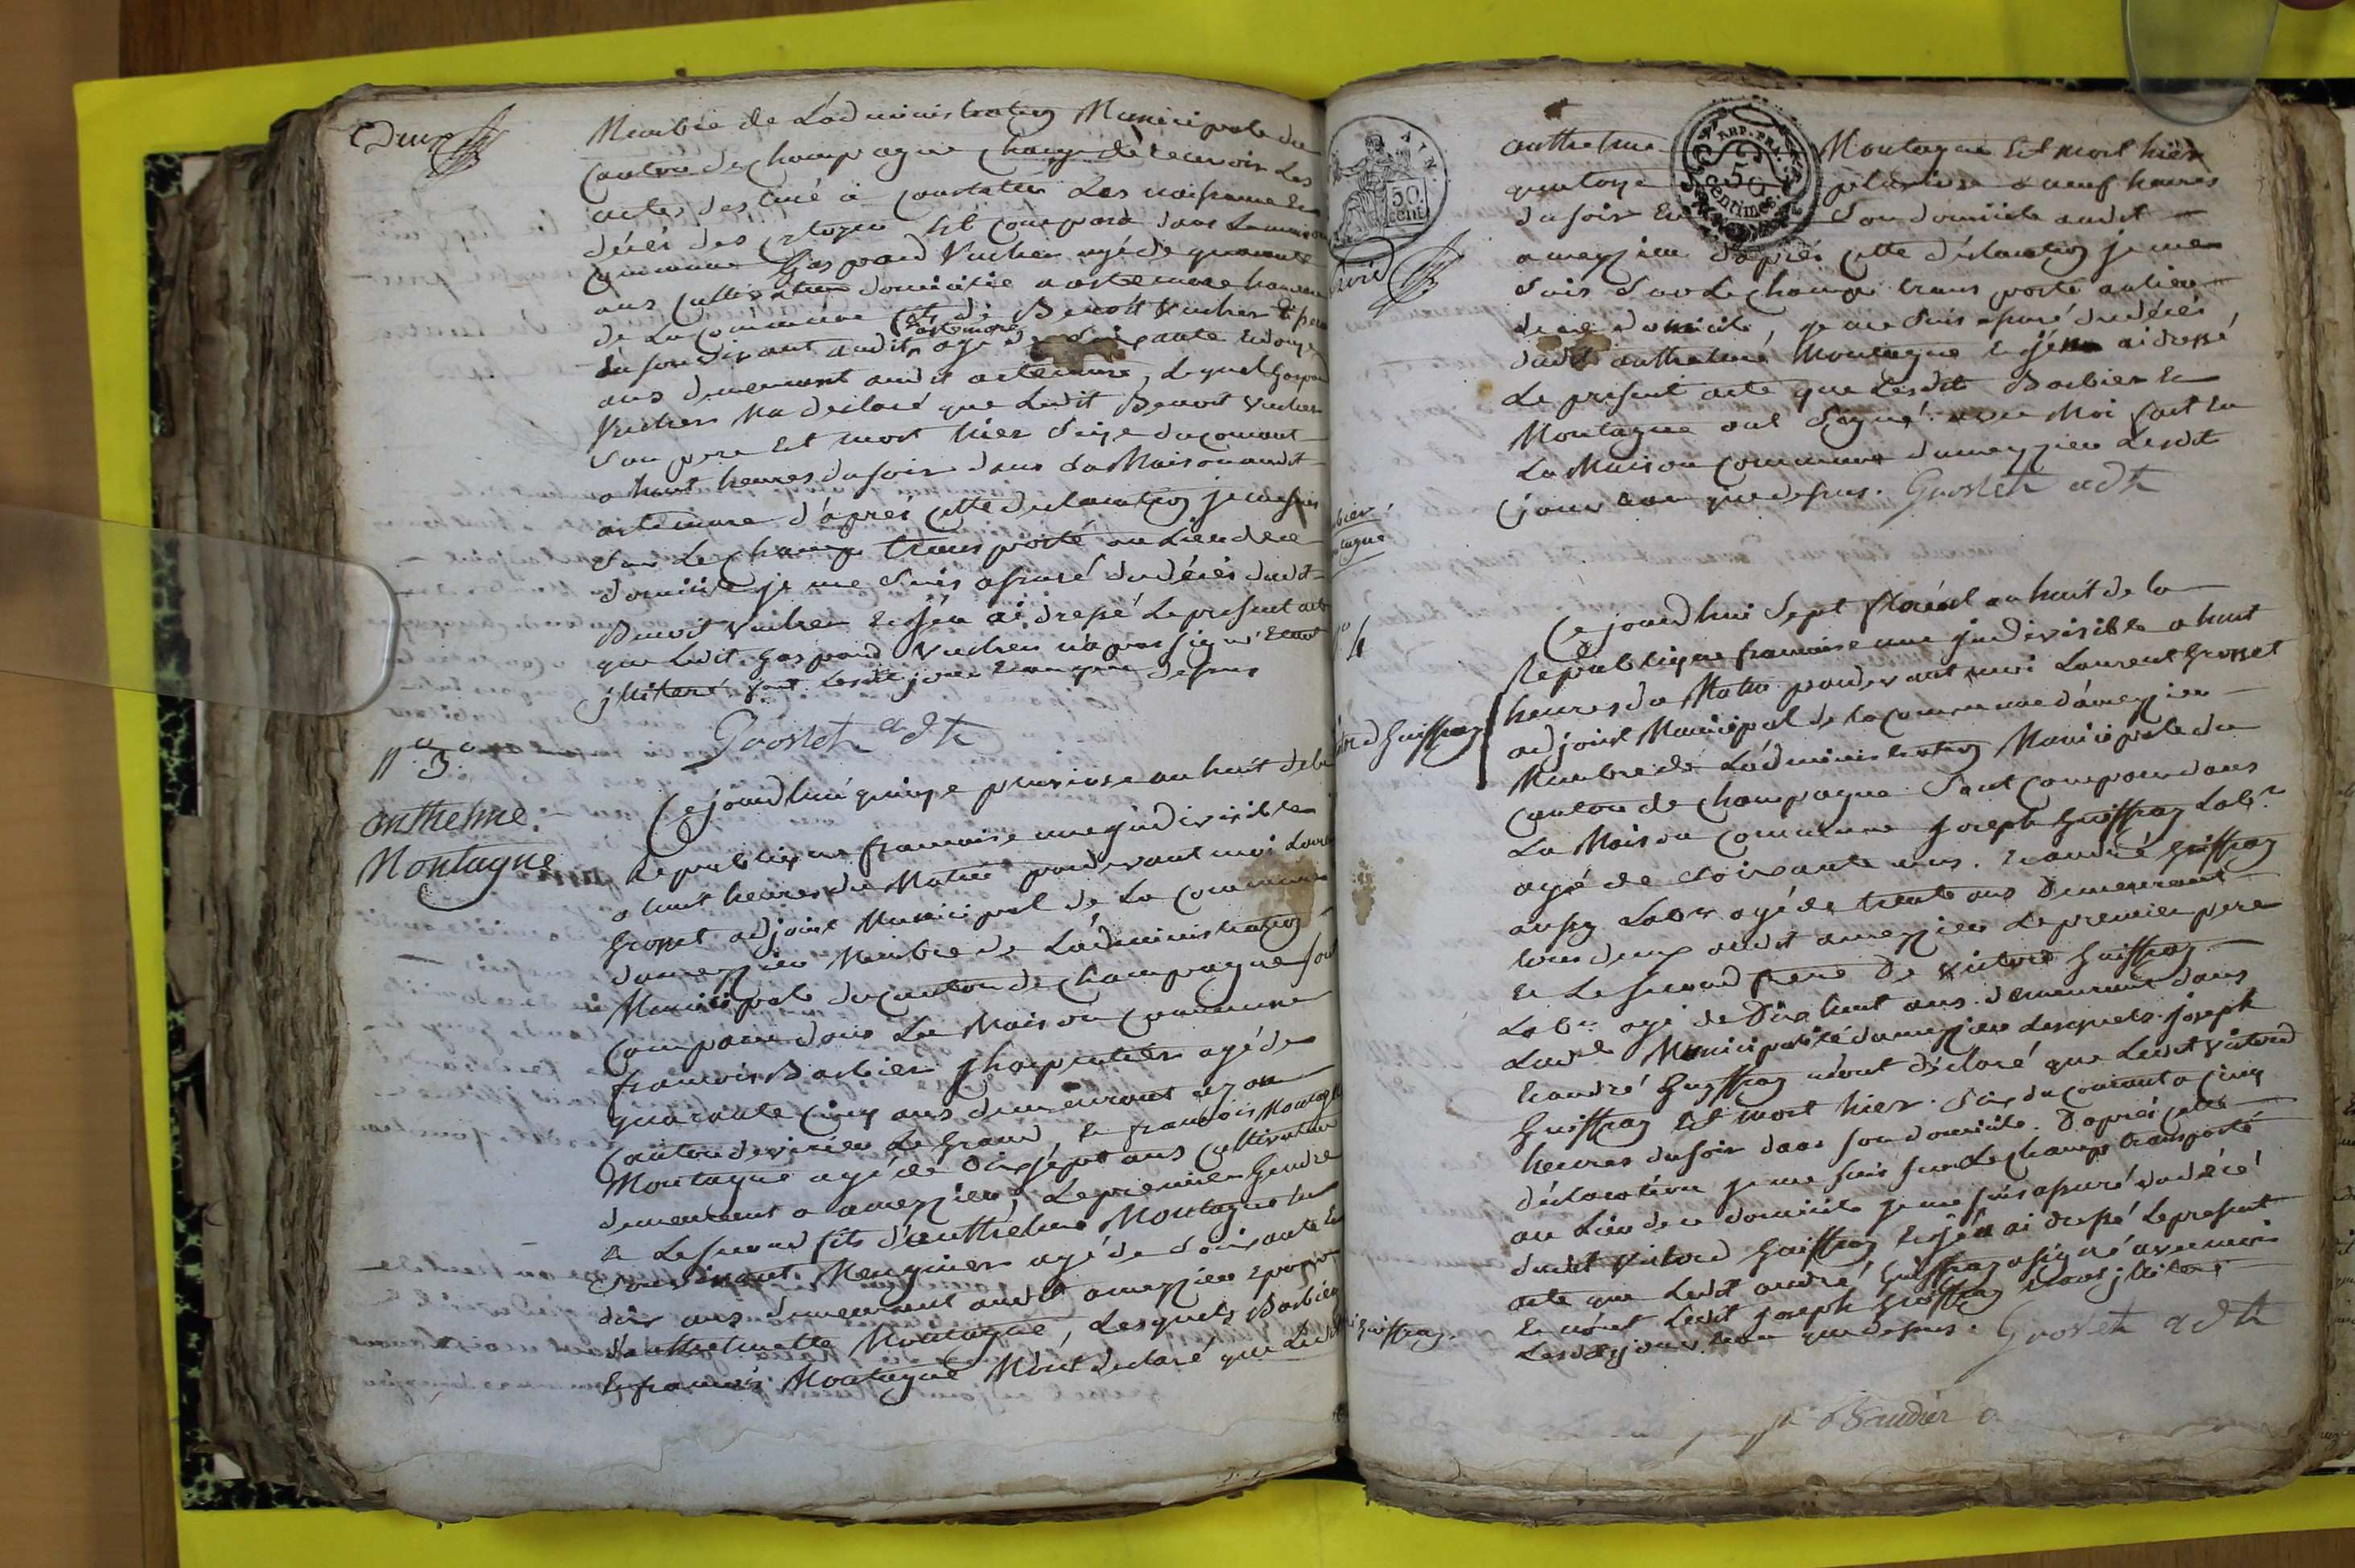 Deux
Membre de L'administration Municipale du
Canton de Champagne Chargé de recevoir Les
actes destiné à constatter Les naissance et
décés des citoyen Est comparu dans La maison
Commune Gaspard Vucher agé de quarante
ans Cultivateur domicilié a artemare hameau
de La Commune fils de Benoit Vucher Le pere
artemare
En son vivant audit agé de soixante et douze
ans demeurant audit artemare, Lequel Gaspard
Vucher Ma declaré que Ledit Benoit Vucher
Son pere Est mort hier Seize du Courant
a huit heures du soir dans La Maison audit
artemare d'apres Cette declaration je me suis
Sur Le Champ transporté au Lieu de ce
domicile je me Suis assuré du décés dudit
Benoit Vucher et j'en ai dressé Le present acte
que Ledit Gaspard Vucher n'a pas signé Etant
jlliteré fait Lesdit jour et an que dessus
Grosset adt
N.o 3.
anthelme
Montagne
Ce jourd'hui quinze pluviose an huit de la
Republique francaise une jndivisible
a huit heures du Matin pardevant moi Laurent
Grosset adjoint Municipal de La Commune
damezzieu Membre de L'administration
Municipale du Canton de Champagne Sont
Comparu dans La Maison Commune
francois Barbier Charpentier agé de
quarante Cinq ans demeurant
Canton de virieu Le Grand, et francois Montagne
Montagne agé de Dix sept ans Cultivateur
demeurant a amezzieu, Le premier Gendre
et Le second fils d'anthelme Montagne En
Son vivant Meugnier agé de Soixante et
dix ans demeurant audit amezzieu Epoux
d'anthelmette Montagne, Lesquels Barbier
et francois Montagne M'ont declaré que Ledit
50
cent
REP. FRA.
50
Centimes
anthelme Montagne Est mort hier
quatorze pluviose a neuf heures
du soir En Son domicile audit
amezzieu d'aprés Cette déclaration je me
Suis Sur Le Champ transporté au Lieu
de ce domicile, je me Suis assuré du décés
dudit anthelme Montagne et j'en ai dressé
Le present acte que Lesdit Barbier et
Montagne ont Signé avec Moi fait En
La Maison Commune damezzieu Lesdit
jour et an que dessus. Grosset adt
4
Guiffray
Ce jourd'hui Sept floréal an huit de la
Republique francaise une jndivisible a huit
heures du Matin pardevant moi Laurent Grosset
adjoint Municipal de la Commune d'amezzieu
Membre de L'administration Municipale du
Canton de Champagne Sont Comparu dans
La Maison Commune Joseph Guiffray Labr.
agé de Soixante ans. et andré Guiffray
aussy Labr agé de trente ans Demeurant
tous deux audit amezzieu Le premier pere
et Le second frere De victord Guiffray
Labr. agé de Dix huit ans demeurant dans
Lad.e Municipalité damezzieu Lesquels joseph
et andré Guiffray m'ont déclaré que Ledit victord
Guiffray Est mort hier Six du Courant a Cinq
heures du soir dans son domicile. D'aprés Cette
déclaration je me suis sur Le Champ transporté
au Lieu de ce domicile je me suis assuré du décé
dudit victord Guiffray et j'en ai dressé Le present
acte que Ledit andré Guiffray a signé avec moi
et nont Ledit joseph Guiffray Etant jlliteré
Lesdit jour et an que dessus. Grosset adt
Guiffray.